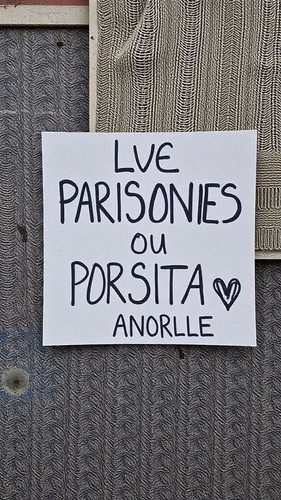 LVE
PARISONIES
OU
PORSITA ♥
ANORLLE